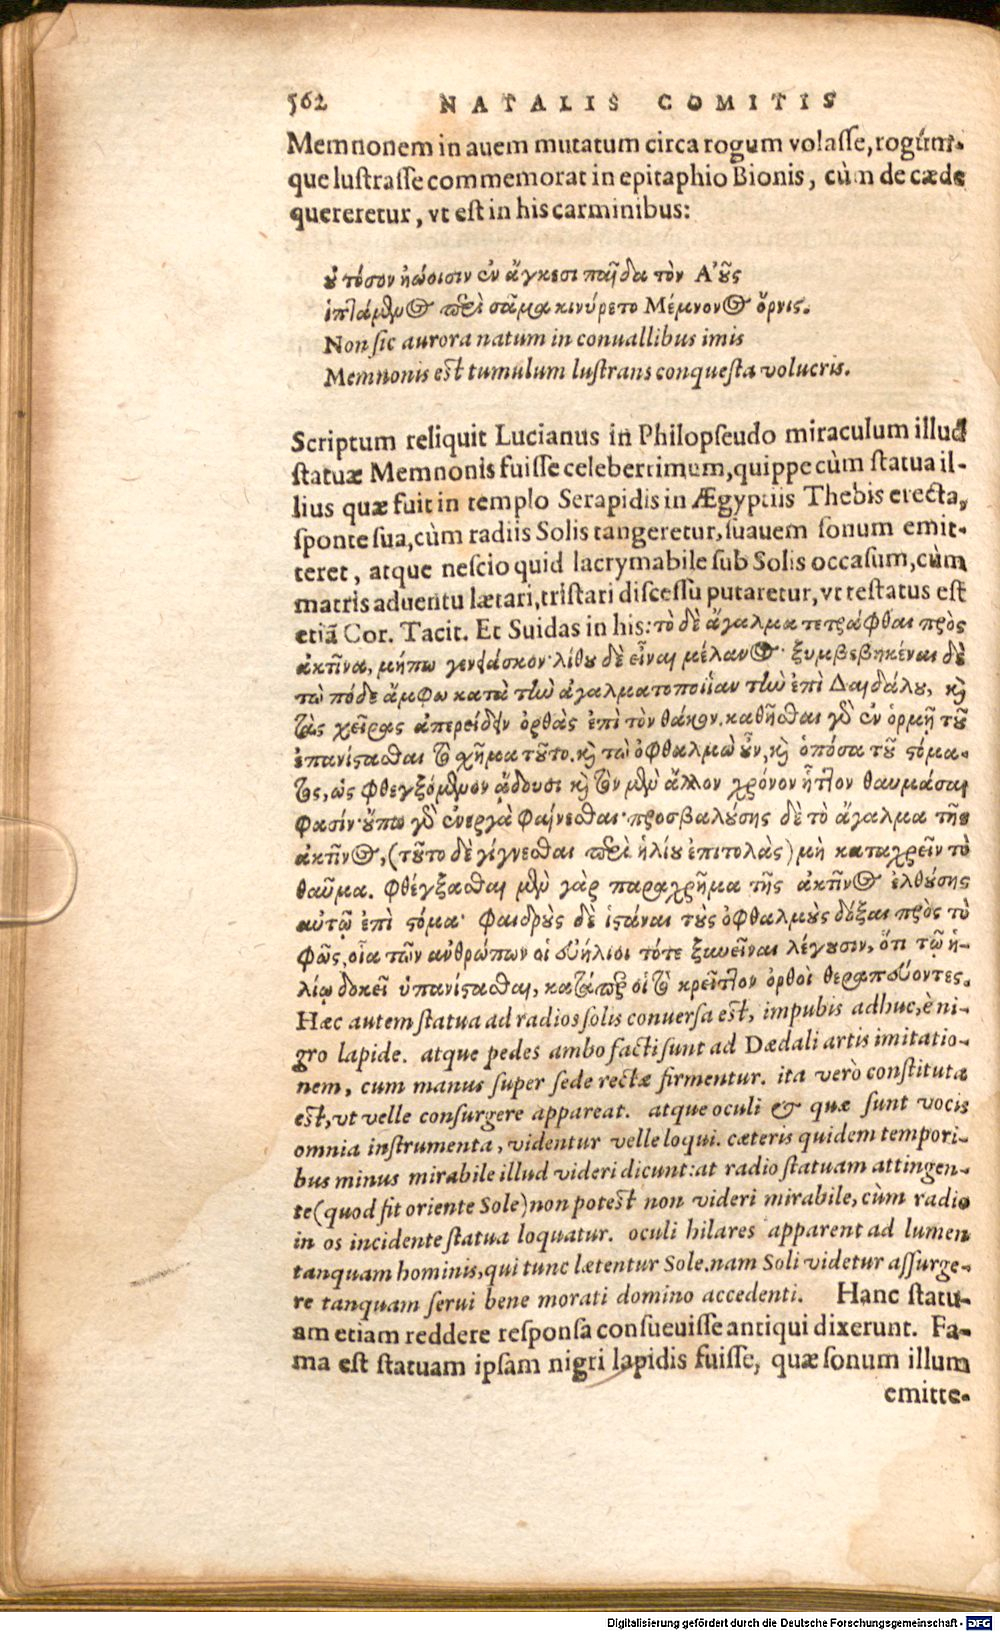 562 NATALIS COMITIS
Memnonem in auem mutatum circa rogum volasse, rogúm-
que lustrasse commemorat in epitaphio Bionis, cùm de cæde
quereretur, vt est in his carminibus:
οὐ τόσον ἠῴοισιν ἐν ἄγκεσι παῖδα τὸν Ἀοῦς
ἱπτάμενος περὶ σᾶμα κινύρετο Μέμνονος ὄρνις.
Non sic aurora natum in conuallibus imis
Memnonis est tumulum lustrans conquesta volucris.
Scriptum reliquit Lucianus in Philopseudo miraculum illud
statuæ Memnonis fuisse celeberrimum, quippe cùm statua il-
lius quæ fuit in templo Serapidis in Ægyptiis Thebis erecta,
sponte sua, cùm radiis Solis tangeretur, suauem sonum emit-
teret, atque nescio quid lacrymabile sub Solis occasum, cùm
matris aduentu lætari, tristari discessu putaretur, vt testatus est
etiã Cor. Tacit. Et Suidas in his: τὸ δὲ ἄγαλμα τετράφθαι πρὸς
ἀκτῖνα, μήπω γενειάσκον· λίθου δὲ εἶναι μέλανος· ξυμβεβηκέναι δὲ
τὼ πόδε ἄμφω κατὰ τὴν ἀγαλματοποιΐαν τὴν ἐπὶ Δαιδάλου, καὶ
τὰς χεῖρας ἀπερείδειν ὀρθὰς ἐπὶ τὸν θάκον. καθῆσθαι γὰρ ἐν ὁρμῇ τοῦ
ἐπανίστασθαι τὸ σχῆμα τοῦτο. καὶ τὼ ὀφθαλμὼ οὖν, καὶ ὁπόσα τοῦ στόμα-
τος, ὡς φθεγξόμενον ᾄδουσι καὶ τὸν μὲν ἄλλον χρόνον ἧττον θαυμάσαι
φασίν· οὔπω γὰρ ἐνεργὰ φαίνεσθαι· προσβαλούσης δὲ τὸ ἄγαλμα τῆς
ἀκτῖνος, (τοῦτο δὲ γίγνεσθαι περὶ ἡλίου ἐπιτολὰς) μὴ καταχρεῖν τὸ
θαῦμα. φθέγξασθαι μὲν γὰρ παραχρῆμα τῆς ἀκτῖνος ἐλθούσης
αὐτῷ ἐπὶ στόμα· φαιδροὺς δὲ ἱστάναι τοὺς ὀφθαλμοὺς δόξαι πρὸς τὸ
φῶς, οἷα τῶν ἀνθρώπων οἱ εὐήλιοι τότε ξυνεῖναι λέγουσιν, ὅτι τῷ ἡ-
λίῳ δοκεῖ ὑπανίστασθαι, καθάπερ οἱ τὸ κρεῖττον ὀρθοὶ θεραπεύοντες.
Hæc autem statua ad radios solis conuersa est, impubis adhuc, è ni-
gro lapide. atque pedes ambo facti sunt ad Dædali artis imitatio-
nem, cum manus super sede rectæ firmentur. ita verò constituta
est, vt velle consurgere appareat. atque oculi & quæ sunt vocis
omnia instrumenta, videntur velle loqui. cæteris quidem tempori-
bus minus mirabile illud videri dicunt: at radio statuam attingen-
te (quod fit oriente Sole) non potest non videri mirabile, cùm radio
in os incidente statua loquatur. oculi hilares apparent ad lumen
tanquam hominis, qui tunc lætentur Sole. nam Soli videtur assurge-
re tanquam serui bene morati domino accedenti. Hanc statu-
am etiam reddere responsa consueuisse antiqui dixerunt. Fa-
ma est statuam ipsam nigri lapidis fuisse, quæ sonum illum
emitte-
Digitalisierung gefördert durch die Deutsche Forschungsgemeinschaft - DFG